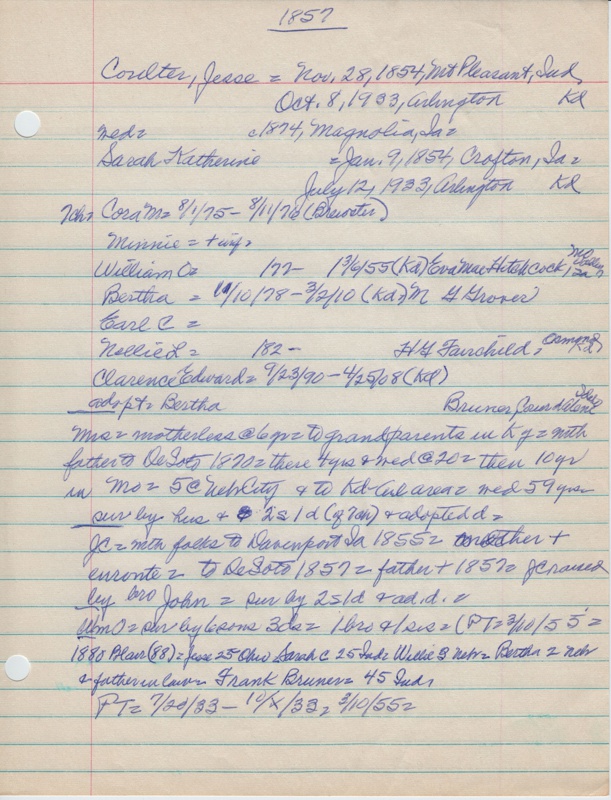 1857
Coulter, Jesse = Nov. 28, 1854, Mt Pleasant, Ind,
Oct. 8, 1933, Arlington Kd
med = c1874, Magnolia, Ia =
Sarah Katherine = Jan. 9, 1854, Crofton, Ia =
July 12, 1933, Arlington Kd
7ch = Cora M = 8/1/75 - 8/11/76 (Brewster)
Minnie = + inf =
William O = 177 - 1 3/6/55 (Kd) Eva Mae Hitchcock, Mo Valley Ia
Bertha = 11/10/78 - 3/2/10 (Kd) M G Grover
Earl C =
Nellie L = 182 - H G Fairchild, Osmond
Clarence Edward = 9/23/90 - 4/25/08 (Kd)
adopt = Bertha Bruner, Idaho
Mrs = motherless @ 6 yr = to grandparents in Ky = mth
father to DeSoto 1870 = there 4 yrs & med @ 20 = then 10 yr
in Mo = 5 @ Neb City & to Kd area = med 59 yrs =
sur by hus & 2s 1d (of 7ch) & adopted d =
JC = mth folks to Davenport Ia 1855 = mother +
enroute = to DeSoto 1857 = father + 1857 = JC raised
by bro John = sur by 2s 1d & ad. d. =
Wm O = sur by 6 sons 3 ds = 1 bro & 1 sis = (PT = 3/10/55 =
1880 Blair (88) = Jesse 25 Ohio Sarah C 25 Ind = Willie 3 Neb = Bertha 2 Neb
& father in law = Frank Bruner = 45 Ind,
PT = 7/20/33 - 10/X/33, 3/10/55 =